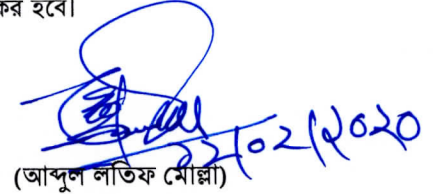 কর হবে।
১২/০২/২০২০
(আব্দুল লতিফ মোল্লা)